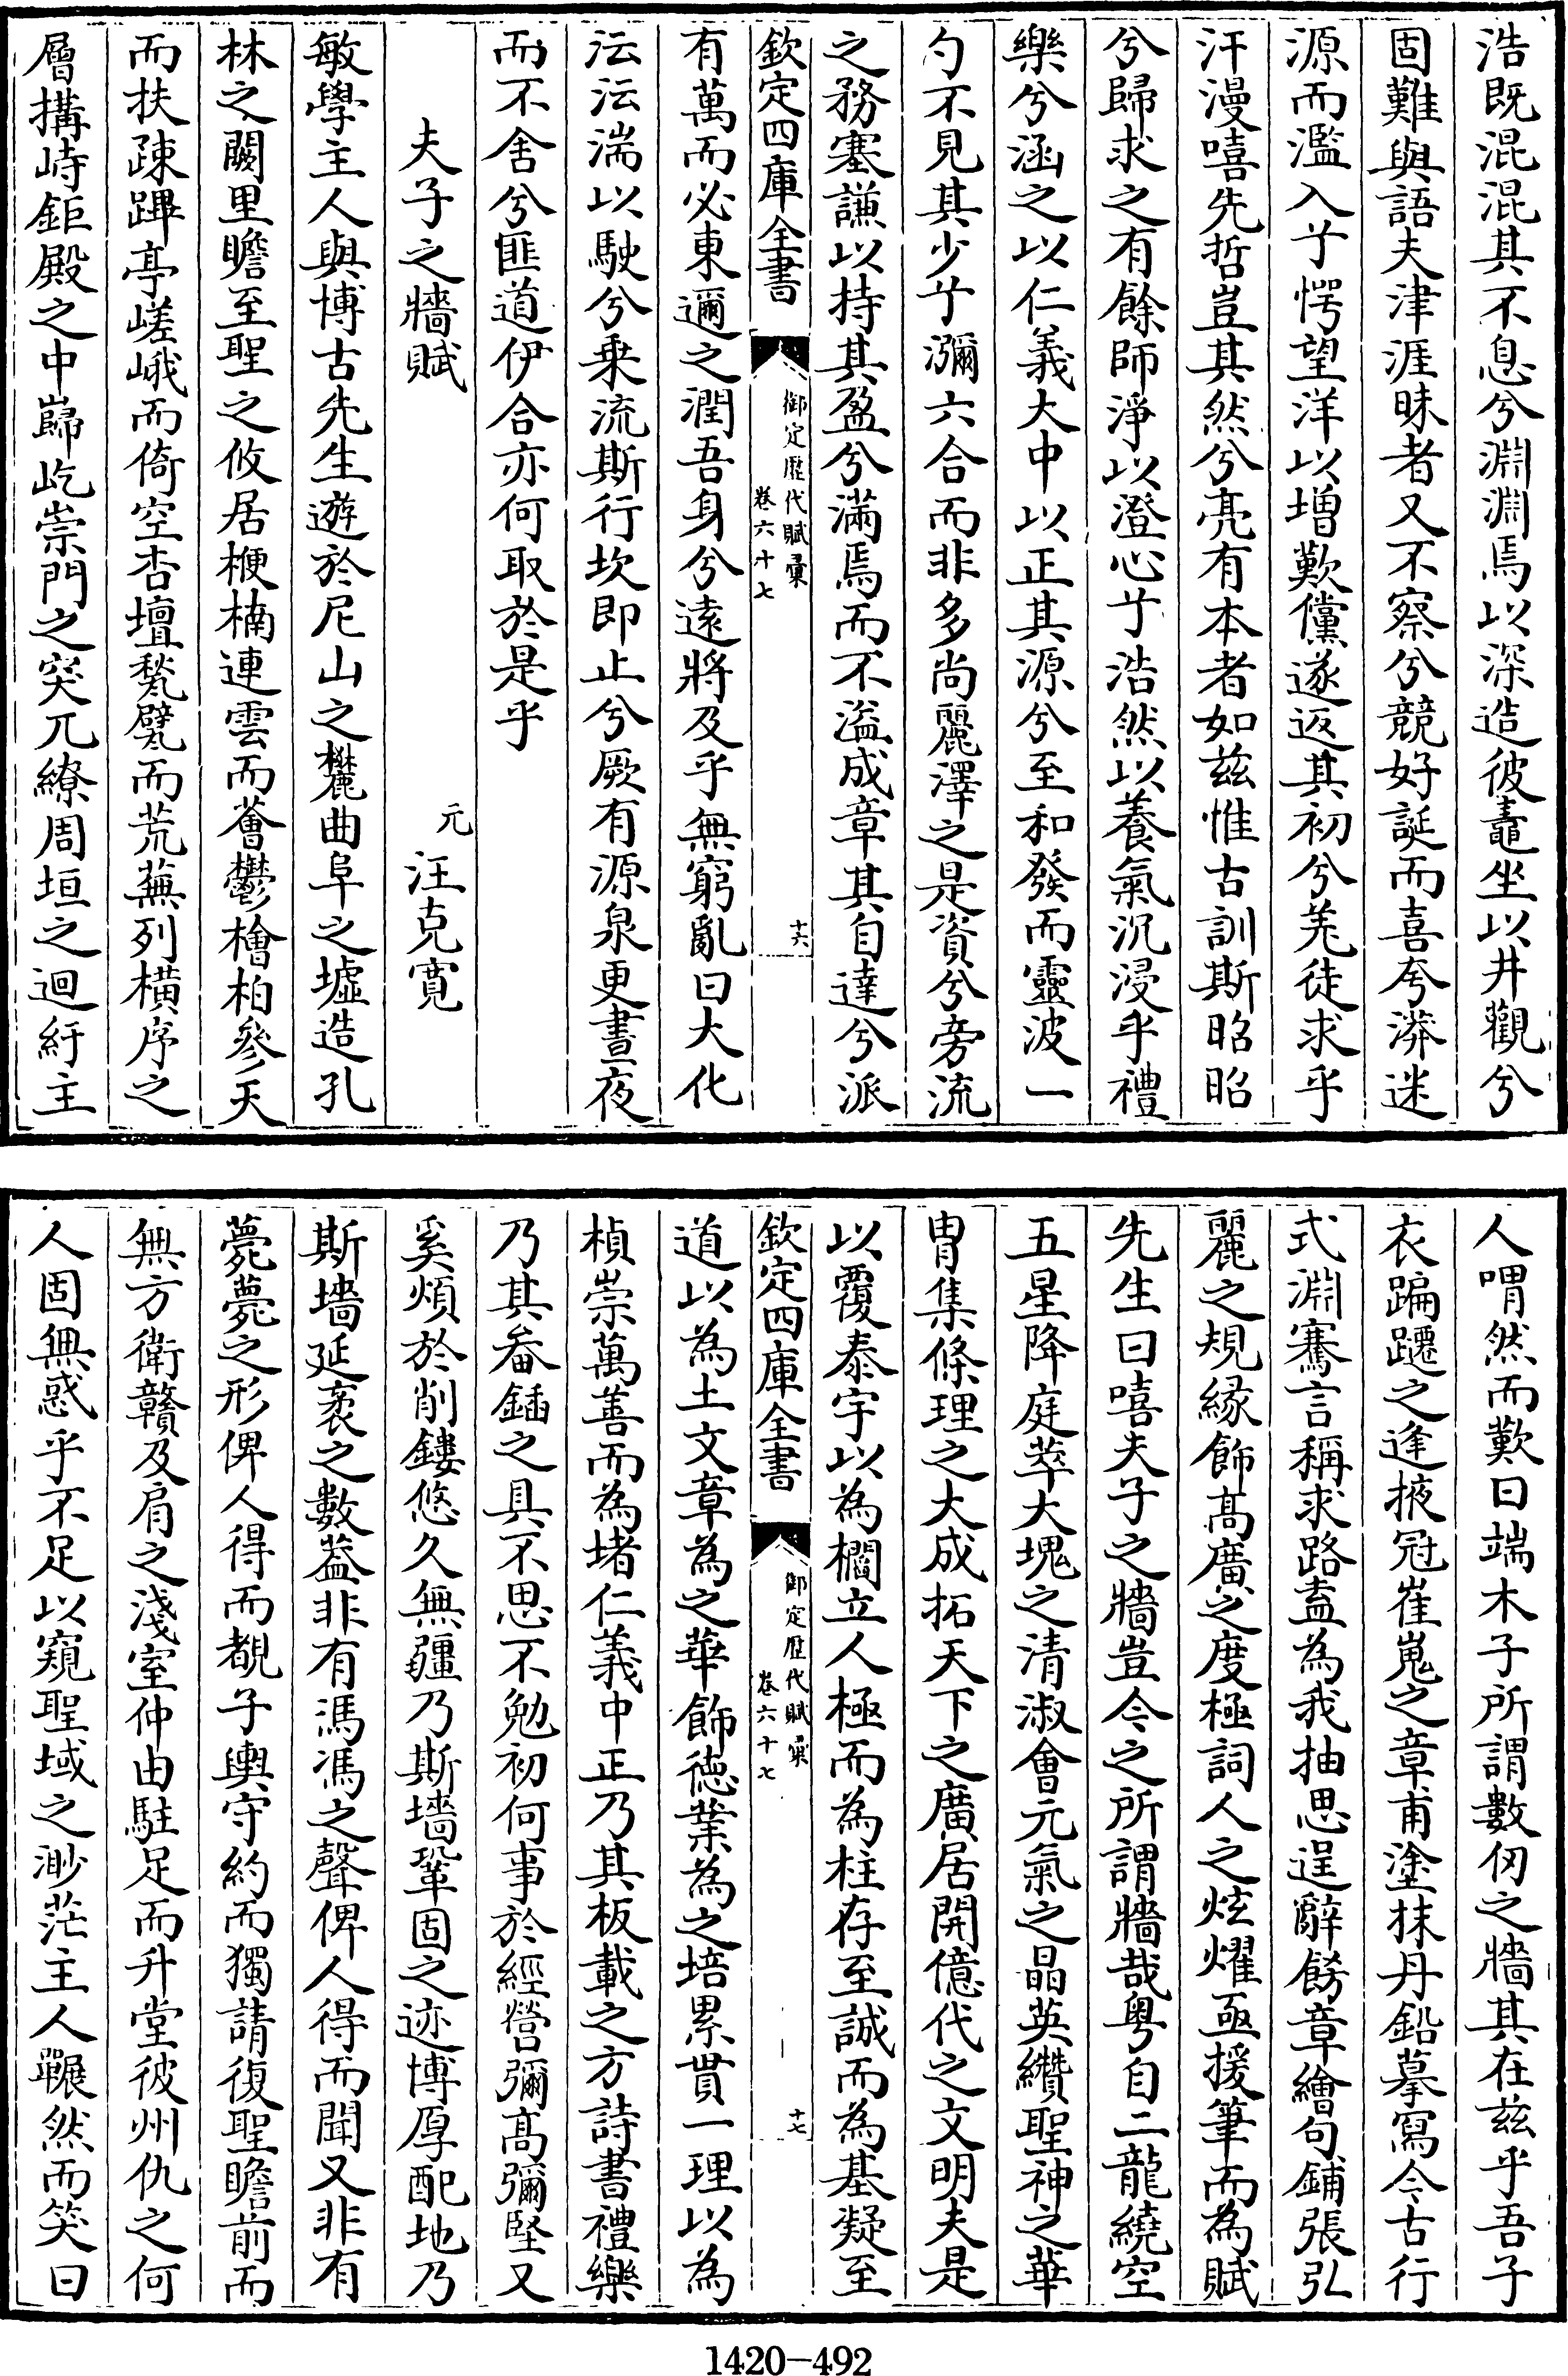 浩既混混其不息兮淵淵焉以深造彼鼃坐以井觀兮
固難與語夫津涯昧者又不察兮競好誕而喜夸漭迷
源而濫入兮愕望洋以增歎儻遂返其初兮羌徒求乎
汗漫嘻先哲豈其然兮亮有本者如兹惟古訓斯昭昭
兮歸求之有餘師淨以澄心兮浩然以養氣沉浸乎禮
樂兮涵之以仁義大中以正其源兮至和發而靈波一
勺不見其少兮瀰六合而非多尚麗澤之是資兮旁流
之務塞謙以持其盈兮滿焉而不溢成章其自達兮派
欽定四庫全書
御定歷代賦彙
卷六十七
十六
有萬而必東邇之潤吾身兮遠將及乎無窮亂曰大化
沄沄湍以駛兮乗流斯行坎即止兮厥有源泉更晝夜
而不舍兮匪道伊合亦何取於是乎
夫子之牆賦
元 汪克寛
敏學主人與博古先生遊於尼山之麓曲阜之墟造孔
林之闕里瞻至聖之攸居楩楠連雲而薈鬱檜柏參天
而扶疎蹕亭嵯峨而倚空杏壇甃甓而荒蕪列横序之
層搆峙鉅殿之中巋屹崇門之突兀繚周垣之迴紆主
人喟然而歎曰端木子所謂數仞之牆其在兹乎吾子
衣蹁躚之逢掖冠崔嵬之章甫塗抹丹鉛摹寫今古行
式淵騫言稱求路盍為我抽思逞辭餝章繪句鋪張弘
麗之規緣飾髙廣之度極詞人之炫燿亟援筆而為賦
先生曰嘻夫子之牆豈今之所謂牆哉粤自二龍繞空
五星降庭萃大塊之清淑會元氣之晶英纘聖神之華
胄集條理之大成拓天下之廣居開億代之文明夫是
以覆泰宇以為櫩立人極而為柱存至誠而為基凝至
欽定四庫全書
御定歷代賦彙
卷六十七
十七
道以為土文章為之華飾徳業為之培累貫一理以為
楨崇萬善而為堵仁義中正乃其板載之方詩書禮樂
乃其畚鍤之具不思不勉初何事於經營彌髙彌堅又
奚煩於削鏤悠久無疆乃斯墻鞏固之迹博厚配地乃
斯墻延袤之數葢非有馮馮之聲俾人得而聞又非有
薨薨之形俾人得而覩子輿守約而獨請復聖瞻前而
無方衛贛及肩之淺室仲由駐足而升堂彼州仇之何
人固無惑乎不足以窺聖域之渺茫主人冁然而笑曰
1420—492